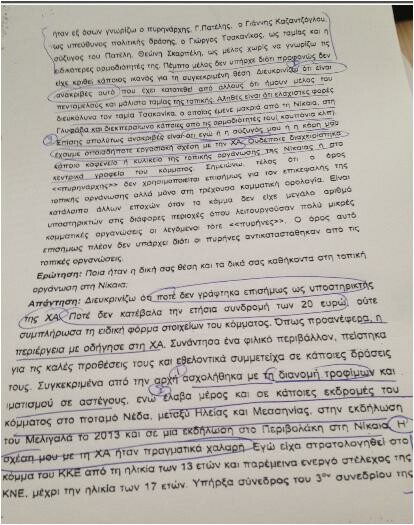 ήταν εξ όσων γνωρίζω ο πυρηνάρχης, Γ.Πατέλης, ο Γιάννης Καζαντζόγλου,
ως υπεύθυνος πολιτικής δράσης, ο Γιώργος Τσακανίκας, ως ταμίας και η
σύζυγος του Πατέλη, Θεώνη Σκαρπέλη, ως μέλος χωρίς να γνωρίζω τις
ειδικότερες αρμοδιότητές της. Πέμπτο μέλος δεν υπήρχε διότι προφανώς δεν
είχε κριθεί κάποιος ικανός για τη συγκεκριμένη θέση. Διευκρινίζω ότι είναι
ανακριβές αυτό που έχει κατατεθεί από άλλους ότι ήμουν μέλος του
πενταμελούς και μάλιστα ταμίας της τοπικής. Αληθές είναι ότι ελαχιστες φορές
διευκόλυνα τον ταμία Τσακανίκα, ο οποίος έμενε μακριά από τη Νίκαια, στη
Γλυφάδα και διεκπεραίωνα κάποιες από τις αρμοδιότητές του( κουπόνια κλπ).
Επίσης απολύτως ανακριβές είναι ότι εγώ ή η σύζυγός μου ή η κόρη μου
έχουμε οποιαδήποτε εργασιακή σχέση με την ΧΑ. Ουδέποτε διαχειρίστηκα
κάποιο καφενείο ή κυλικείο της τοπικής οργάνωσης της Νίκαιας ή στα
κεντρικά γραφεία του κόμματος. Σημειώνω, τέλος ότι ο όρος
<<πυρηνάρχης>> δεν χρησιμοποιείται επισήμως για τον επικεφαλής της
τοπικής οργάνωσης αλλά μόνο στη τρέχουσα κομματική ορολογία. Είναι
κατάλοιπο άλλων εποχών όταν το κόμμα δεν είχε μεγάλο αριθμό
υποστηρικτών στις διάφορες περιοχές όπου λειτουργούσαν πολύ μικρές
κομματικές οργανώσεις οι λεγόμενοι τότε <<πυρήνες>>. Ο όρος αυτό
επισήμως πλέον δεν υπάρχει διότι οι πυρήνες αντικαταστάθηκαν από τις
οργανώσεις.
Ερώτηση: Ποια ήταν η δική σας θέση και τα δικά σας καθήκοντα στη τοπική
οργάνωση στη Νίκαια;
Απάντηση: Διευκρινίζω ότι ποτέ δεν γράφτηκα επισήμως ως υποστηρικτής
της ΧΑ. Ποτέ δεν κατέβαλα την ετήσια συνδρομή των 20 ευρώ, ούτε
συμπλήρωσα τη ειδική φόρμα στοιχείων του κόμματος. Όπως προανέφερα, η
περιέργεια με οδήγησε στη ΧΑ. Συνάντησα ένα φιλικό περιβάλλον, πείστηκα
για τις καλές προθέσεις τους και εθελοντικά συμμετείχα σε κάποιες δράσεις
τους. Συγκεκριμένα από την αρχή ασχολήθηκα με τη διανομή τροφίμων και
ιματισμού σε αστέγους, ενώ έλαβα μέρος και σε κάποιες εκδρομές του
κόμματος στο ποταμό Νέδα, μεταξύ Ηλείας και Μεσσηνίας, στην εκδήλωση
του Μελιγαλά το 2013 και σε μια εκδήλωση στη Περιβολάκη στη Νίκαια. Η
σχέση μου με τη ΧΑ ήταν πραγματικά χαλαρή. Εγώ είχα στρατολογηθεί στο
κόμμα του ΚΚΕ από τη ηλικία των 13 ετών και παρέμεινα ενεργό στέλεχος της
ΚΝΕ, μέχρι την ηλικία των 17 ετών. Υπήρξα σύνεδρος του 3ου συνεδρίου της